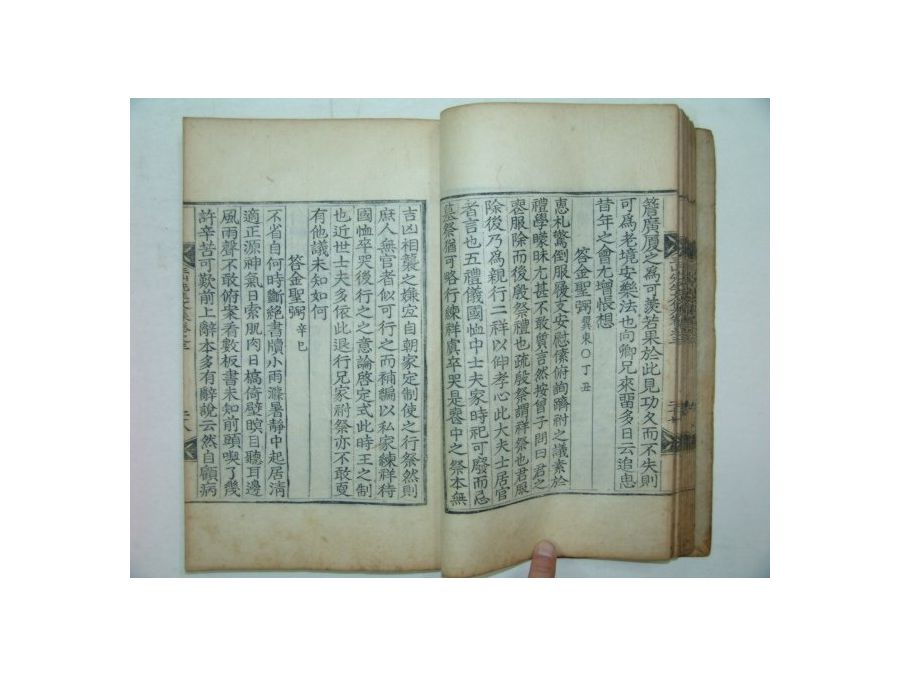 簷廣厦之爲可羨若果於此見功久而不失則
可爲老境安樂法也向卿兄來留多日云追思
昔年之會尤增悵想
答金聖弼冀東○丁丑
惠札驚倒服履支安慰傃俯詢躋祔之議素於
禮學曚昧尤甚不敢質言然按曾子問曰君之
喪服除而後殷祭禮也疏殷祭謂祥祭也君服
除後乃爲親行二祥以伸孝心此大夫士居官
者言也五禮儀國恤中士夫家時祀可廢而忌
墓祭猶可略行練祥虞卒哭是喪中之祭本無
吉凶相襲之嫌宜自朝家定制使之行祭然則
庶人無官者似可行之而補編以私家練祥待
國恤卒哭後行之之意論啓定式此時王之制
也近世士夫多依此退行兄家祔祭亦不敢更
有他議未知如何
答金聖弼辛巳
不省自何時斷絶書牘小雨滌暑靜中起居淸
適正源神氣日索肌肉日槁倚壁暝目聽耳邊
風雨聲不敢俯案看數板書未知前頭喫了幾
許辛苦可歎前上辭本多有辭說云然自顧病